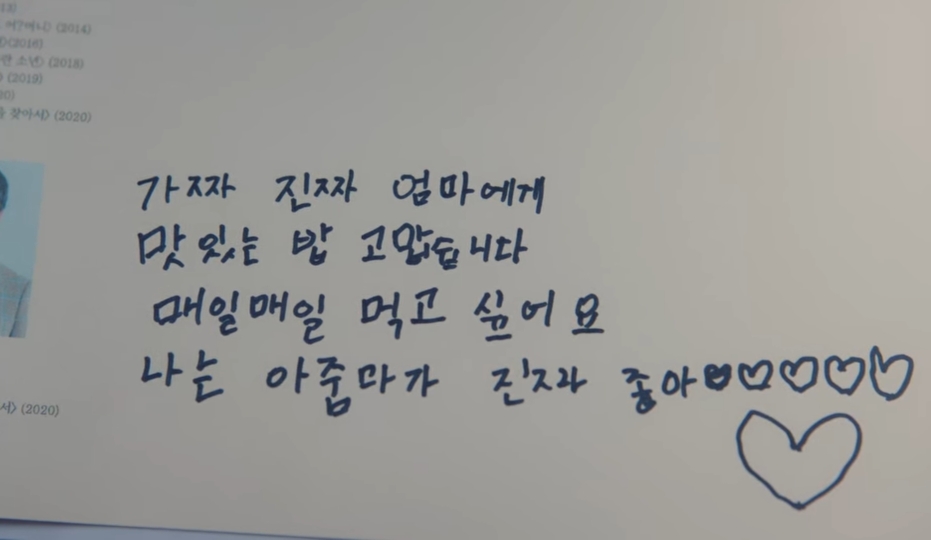 13)
어?머니〉 (2014)
〉(2016)
소년〉 (2018)
〉 (2019)
20)
찾아서〉 (2020)
가짜 진짜 엄마에게
맛있는 밥 고맙습니다
매일매일 먹고 싶어요
나는 아줌마가 진짜 좋아♥♡♡♡♡
♡
서〉 (2020)